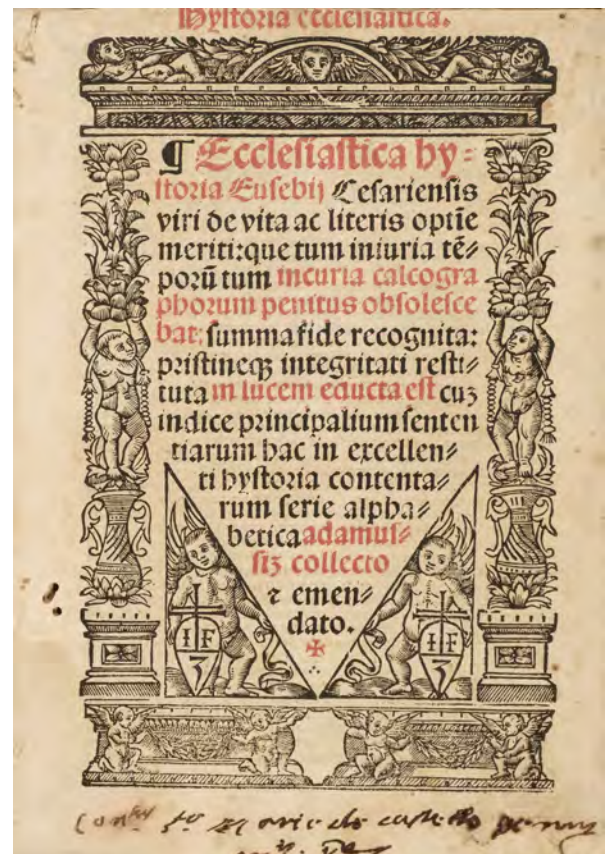 Hystoria ecclesiastica.
¶ Ecclesiastica hy⸗
storia Eusebij Cesariensis
viri de vita ac literis optīe
meriti:que tum iniuria tē⸗
porū tum incuria calcogra
phorum penitus obsolesce
bat: summa fide recognita:
pristineqꝫ integritati resti⸗
tuta in lucem educta est cuꝫ
indice principalium senten
tiarum hac in excellen⸗
ti hystoria contenta⸗
rum serie alpha⸗
betica adamus⸗
siꝫ collecto
⁊ emen⸗
dato.
✠
I F
I F
de castello